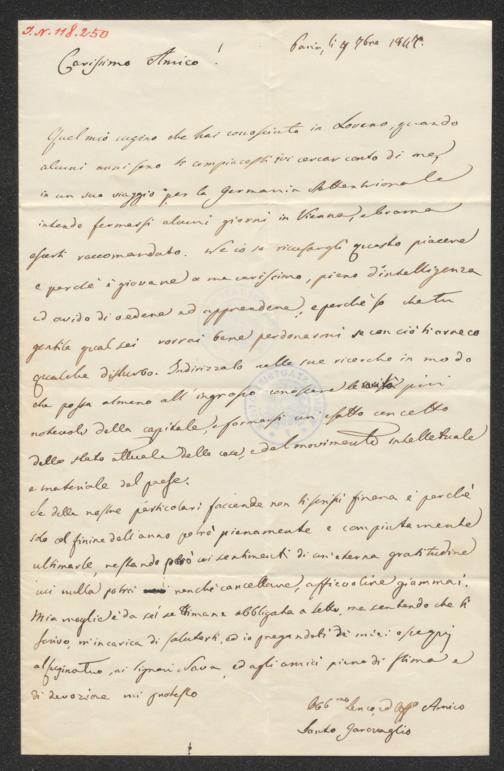 I.N. 118.250
Pavia, li 9 7bre 1847.
Carissimo Amico!
Quel mio cugino che hai conosciuto in Loveno, quando
alcuni anni sono ti compiacesti ivi cercar conto di me,
in un suo viaggio per la Germania Settentrionale
intende fermarsi alcuni giorni in Vienna, e brama
esserti raccomandato. Nè io so ricusargli questo piacere
e perchè è giovane a me carissimo, pieno d'intelligenza
ed avido di vedere ed apprendere, e perchè so che tu
gentile qual sei vorrai bene perdonarmi se con ciò ti arreco
qualche disturbo. Indirizzalo nelle sue ricerche in modo
che possa almeno all'ingrosso conoscere le più
notevoli della capitale, e formarsi un esatto concetto
dello stato attuale delle cose, e del movimento intellettuale
e materiale del paese.
Se delle nostre particolari faccende non ti scrissi finora è perchè
solo al finire dell'anno potrò pienamente e compiutamente
ultimarle, restando poi coi sentimenti di un'eterna gratitudine
cui nulla potrà nonchè cancellare, affievolire giammai.
Mia moglie è da sei settimane obbligata a letto, ma sentendo che ti
scrivo, m'incarica di salutarti, ed io pregandoti de' miei ossequj
al cugino tuo, ai Signori Sava, ed agli amici pieno di stima e
di devozione mi protesto
Obb.mo Amico
Santo Garovaglio